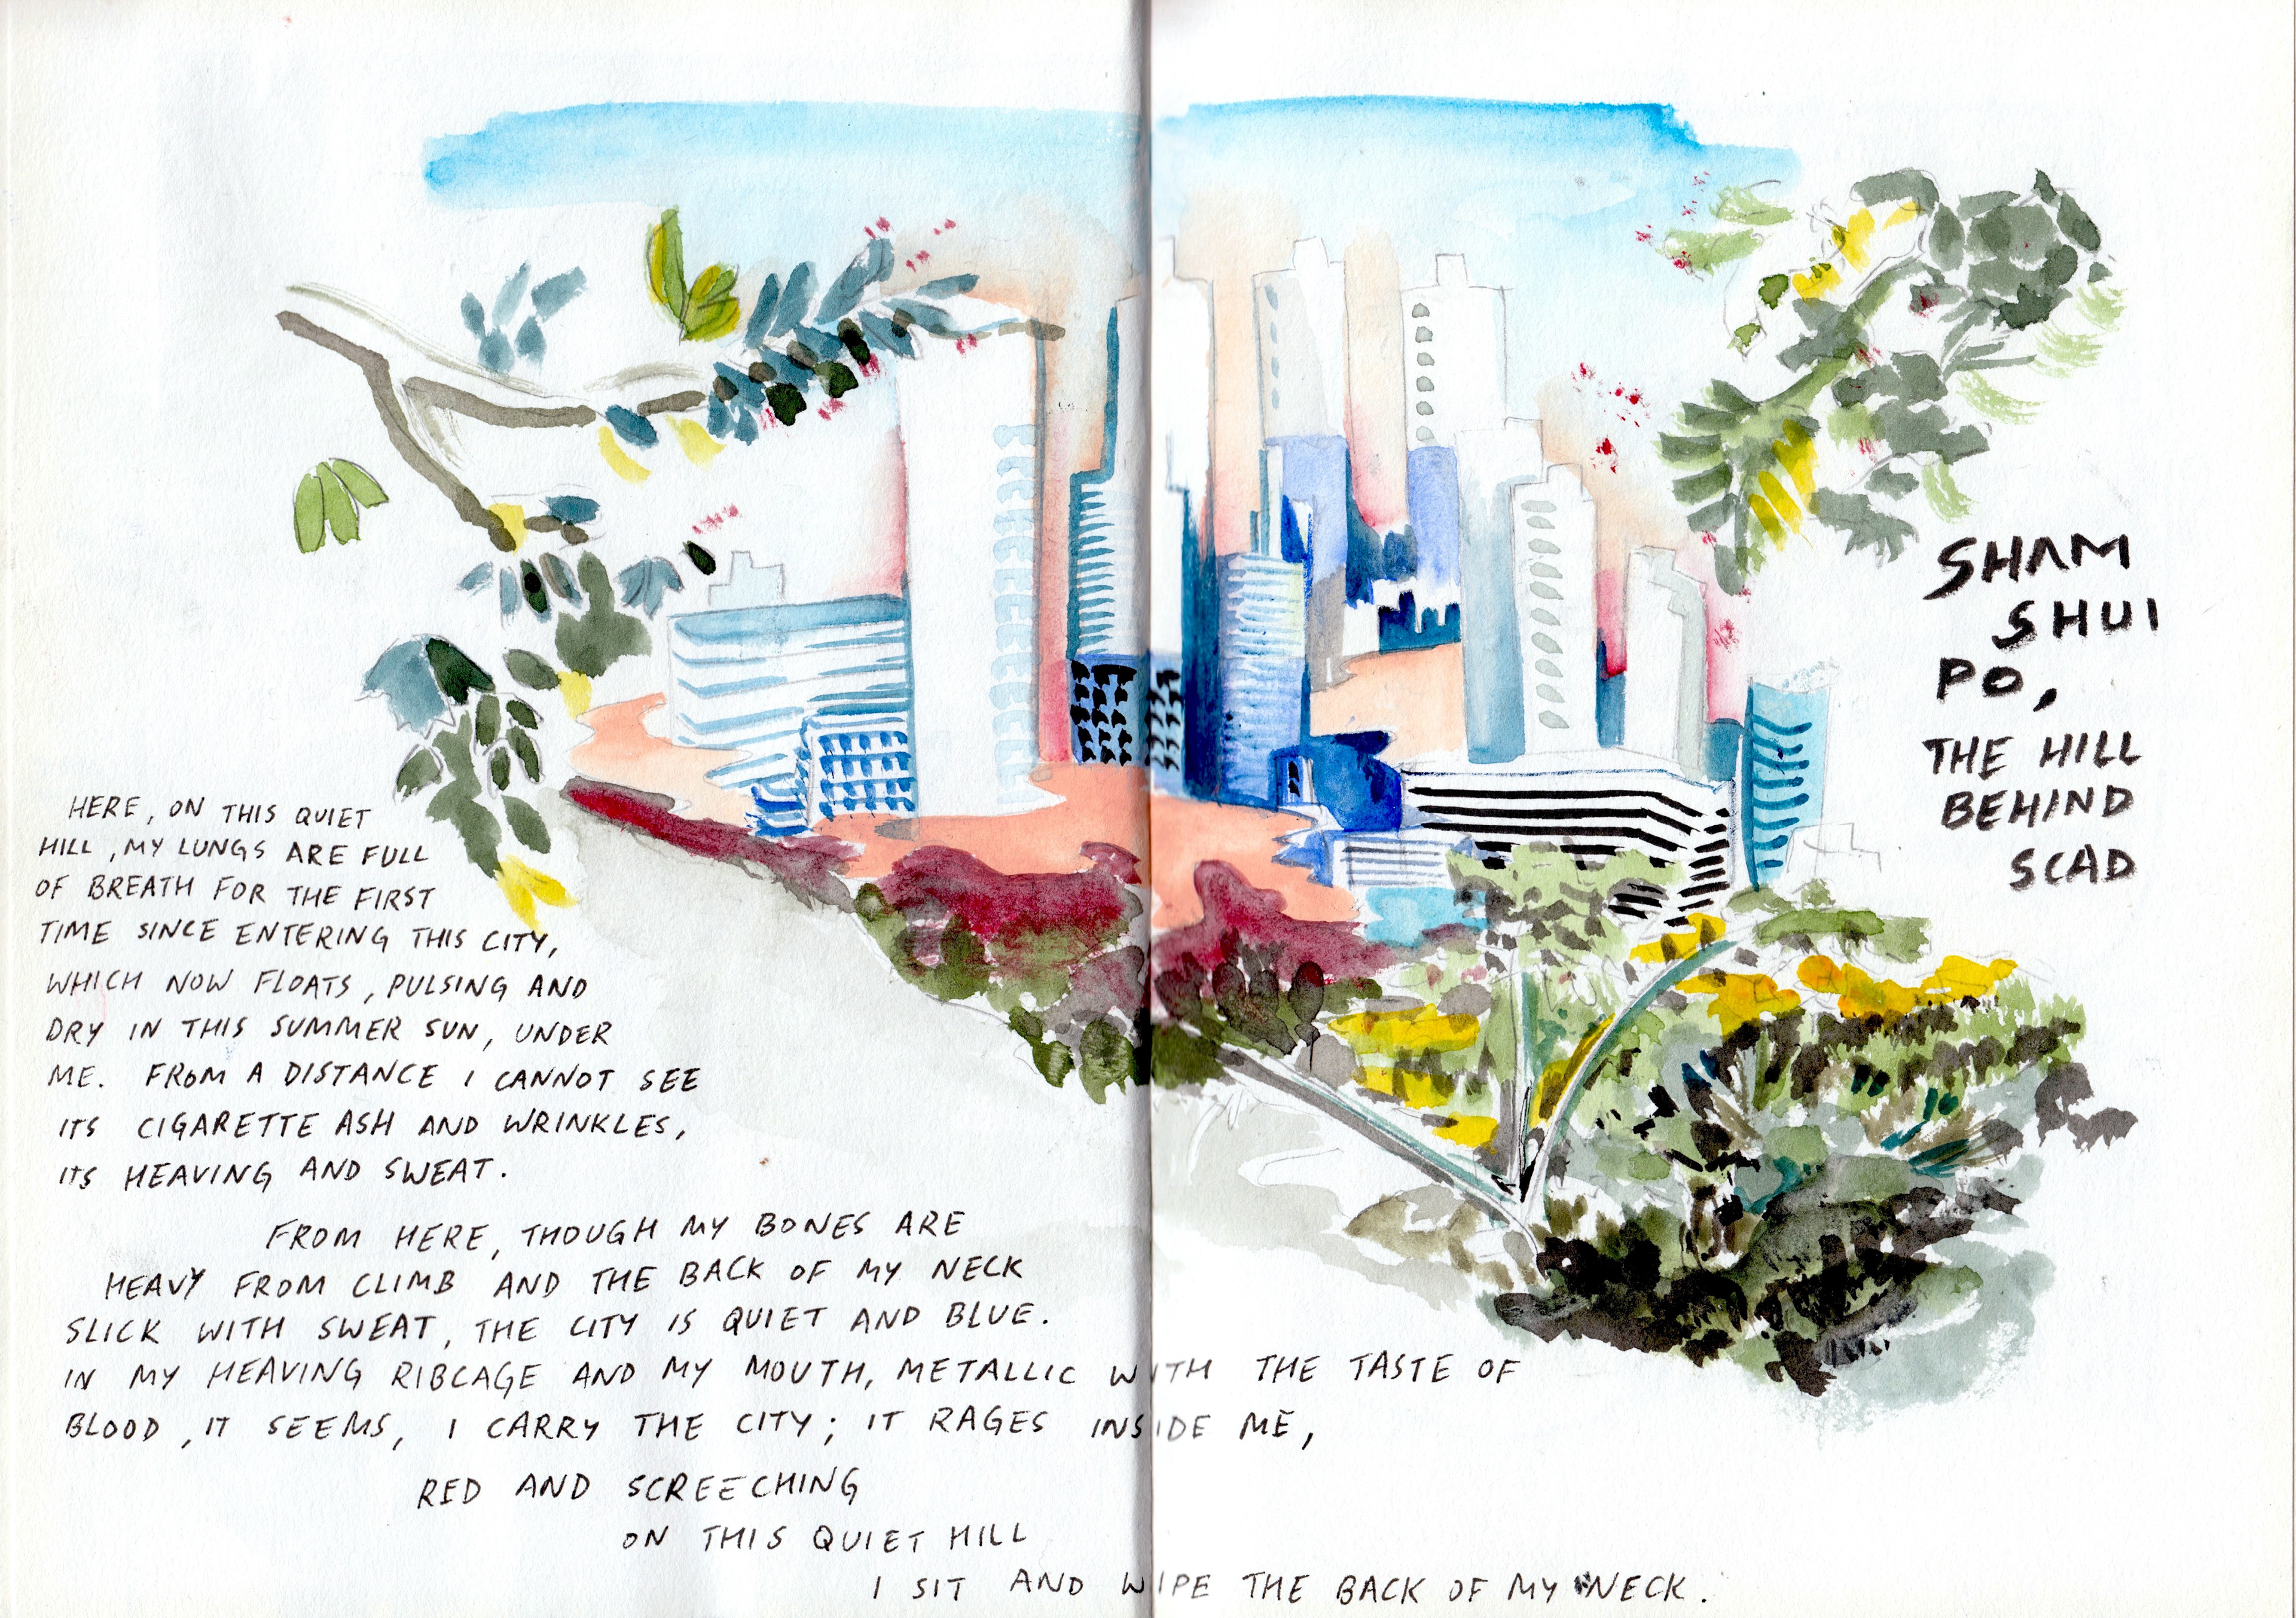 SHAM
SHUI
PO,
THE HILL
BEHIND
SCAD
HERE, ON THIS QUIET
HILL, MY LUNGS ARE FULL
OF BREATH FOR THE FIRST
TIME SINCE ENTERING THIS CITY,
WHICH NOW FLOATS, PULSING AND
DRY IN THIS SUMMER SUN, UNDER
ME. FROM A DISTANCE I CANNOT SEE
ITS CIGARETTE ASH AND WRINKLES,
ITS HEAVING AND SWEAT.
FROM HERE, THOUGH MY BONES ARE
HEAVY FROM CLIMB AND THE BACK OF MY NECK
SLICK WITH SWEAT, THE CITY IS QUIET AND BLUE.
IN MY HEAVING RIBCAGE AND MY MOUTH, METALLIC WITH THE TASTE OF
BLOOD, IT SEEMS, I CARRY THE CITY; IT RAGES INSIDE ME,
RED AND SCREECHING
ON THIS QUIET HILL
I SIT AND WIPE THE BACK OF MY NECK.